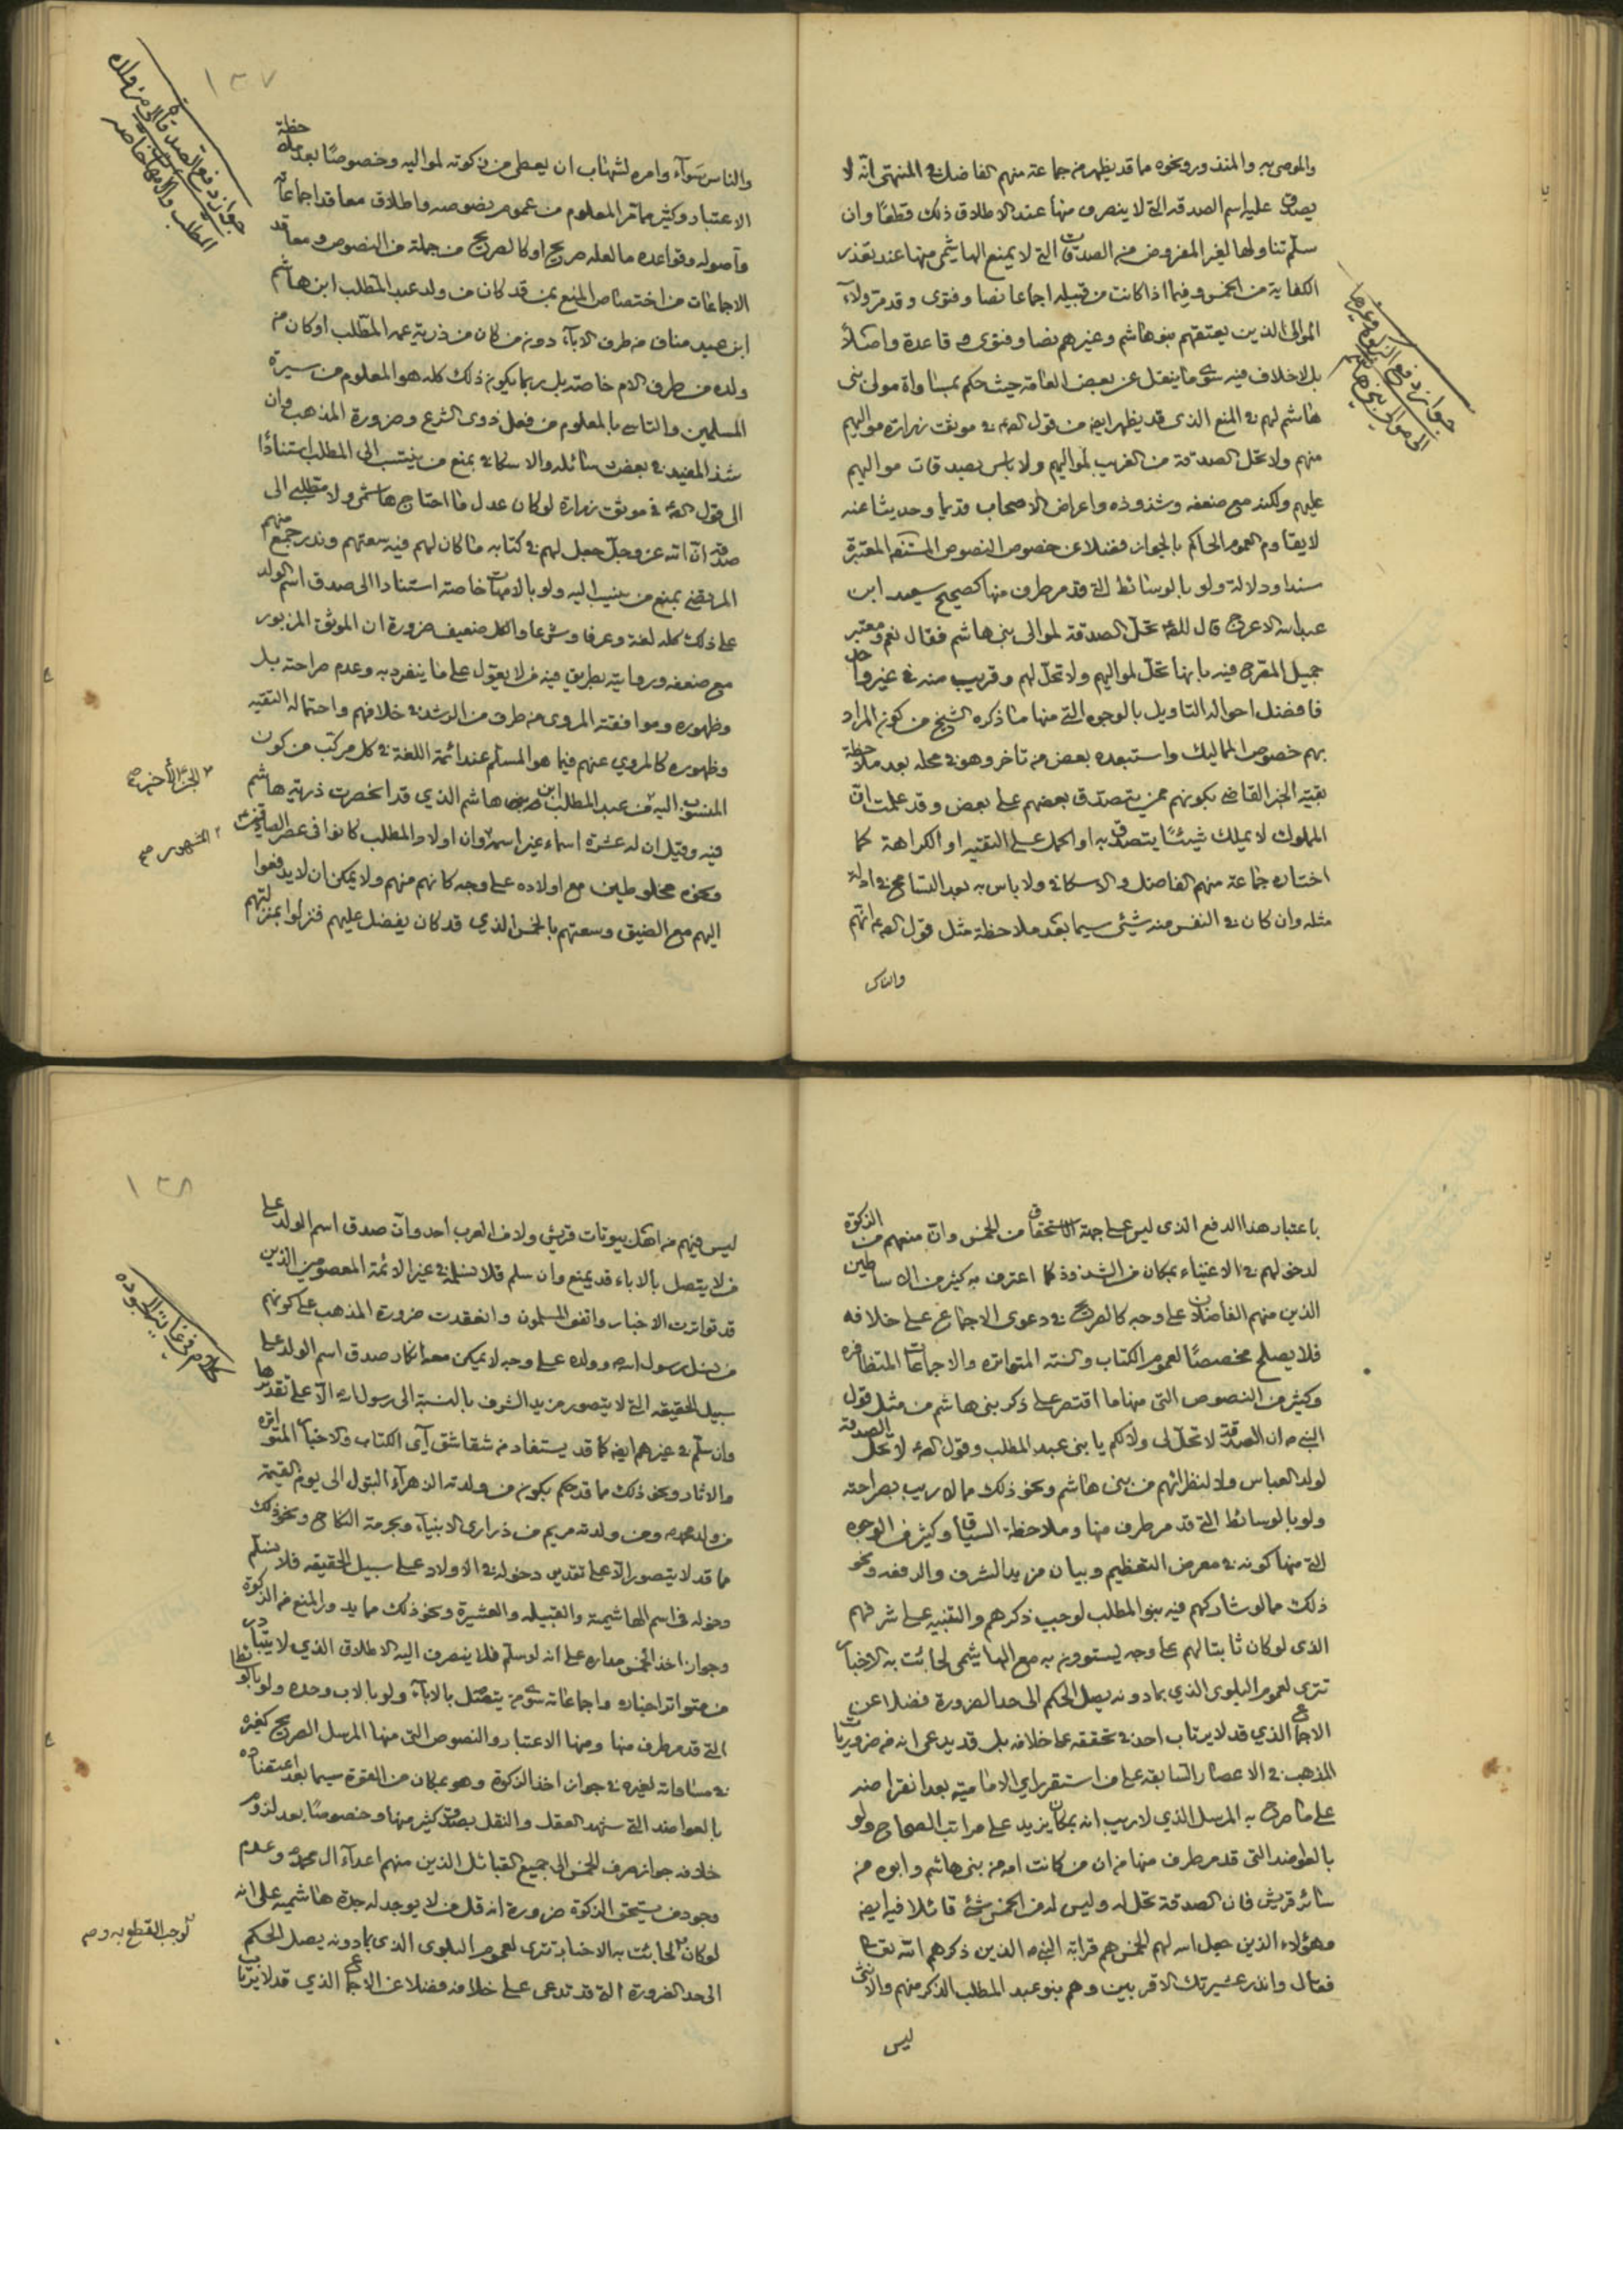 والموصى به والمنذور ونحوه ما قد يظهر من جماعة منهم الفاضل في المنتهى انه لا
يصدق عليه اسم الصدقة التي لا ينصرف منها عند الاطلاق ذلك قطعًا وان
سلم تناولها لغير المفروض من الصدقات التي لا يمنع الهاشمي منها عند تعذر
الكفاية من الخمس وفيما اذا كانت من قبيله اجماعا نصا وفتوى وقد مر ولاء
الموالى الذين يعتقهم بنو هاشم وغيرهم نصا وفتوى وقاعدة واصلًا
بل لا خلاف فيه سوى ما ينقل عن بعض العامة حيث حكم بمساواة مولى بنى
هاشم لهم في المنع الذى قد يظهر ايضا من قول الصم في موثق زرارة مواليهم
منهم ولا تحل الصدقة من الغريب لمواليهم ولا باس بصدقات مواليهم
عليهم ولكنه مع ضعفه وشذوذه واعراض الاصحاب قديما وحديثا عنه
لا يقاوم العموم الحاكم بالجواز فضلا عن خصوص النصوص المعتبرة
سندا ودلالة ولو بالوسائط التي قد مر طرف منها كصحيح سعيد ابن
عبد الله الاعرج قال للصم تحل الصدقة لموالى بنى هاشم فقال نعم ومعتبر
جميل المصرح فيه بانها تحل لمواليهم ولا تحل لهم وقريب منه في غير واحد
فافضل احواله التاويل بالوجوه التي منها ما ذكره الشيخ من كون المراد
بهم خصوص المماليك واستبعده بعض من تاخر وهو في محله بعد ملاحظة
بقية الخبر القاضي بكونهم ممن يتصدق بعضهم على بعض وقد علمت ان
المملوك لا يملك شيئًا يتصدق به او الحمل على التقيه او الكراهة كما
اختاره جماعة منهم الفاضل والاسكافي ولا باس به بعد التسامح في ادلة
مثله وان كان في النفس منه شيئ سيما بعد ملاحظة مثل قول الصم انهم
والناس
جواز دفع الزكوة وغيرها
الى موالى بنى هاشم
١٣٧
والناس سواء وامره لشهاب ان يعطى من زكوته لمواليه وخصوصًا بعد ملاحظة
الاعتبار وكثير مما مر المعلوم من عموم نصوصه واطلاق معاقد اجماعاته
واصوله وقواعده ما لعله صريح او كالصريح من جملة من النصوص ومعاقد
الاجماعات من اختصاص المنع بمن قد كان من ولد عبد المطلب ابن هاشم
ابن عبد مناف من طرف الاباء دون من كان من ذرية عمه المطلب او كان من
ولده من طرف الام خاصة بل ربما يكون ذلك كله هو المعلوم من سيرة
المسلمين والتاسي بالمعلوم من فعل ذوى الشرع وضرورة المذهب وان
شذ المفيد في بعض مسائله والاسكافي بمنع من ينتسب الى المطلب استنادًا
الى قول الصم في موثق زرارة لو كان عدل ما احتاج هاشمى ولا مطلبى الى
صدقة ان الله عز وجل جعل لهم في كتابه ما كان لهم فيه سعتهم وندر جمع منهم
المرتضى بمنع من ينسب اليه ولو بالامهات خاصة استنادا الى صدق اسم الولد
على ذلك كله لغة وعرفا وشرعا والكل ضعيف ضرورة ان الموثق المزبور
مع ضعفه وروايته بطريق فيه من لا يعول على ما ينفرد به وعدم صراحته بل
وظهوره وموافقته المروى من طرف من الرشد في خلافهم واحتماله التقيه
وظهوره كالمروي عنهم فيما هو المسلم عند ائمة اللغة في كل مركب من كون
المنسوب اليه من عبد المطلب ابن هاشم الذي قد انحصرت ذرية هاشم
فيه وقيل ان له عشرة اسماء غير اسمه وان اولاد المطلب كانوا فى عصر الصادقين
ونحوه مخلوطين مع اولاده على وجه كانهم منهم ولا يمكن ان لا يدفعوا
اليهم مع الضيق وسعتهم بالخمس الذي قد كان يفضل عليهم فنزلوا بمنزلتهم
جواز دفع الصدقة الى من ولده
المطلب والامهات خاصة
الجزء الأخير صح
المشهور صح
باعتبار هذا الدفع الذى ليس على جهة الاستحقاق من الخمس وان منعهم من الزكوة
لدخولهم في الاغنياء بمكان من الشذوذ كما اعترف به كثير من الاساطين
الذين منهم الفاضلان على وجه كالصريح في دعوى الاجماع على خلافه
فلا يصلح مخصصًا لعموم الكتاب والسنة المتواترة والاجماعات المتظافرة
وكثير من النصوص التي منها ما اقتصر على ذكر بنى هاشم من مثل قول
النبي ص ان الصدقة لا تحل لى ولا لكم يا بنى عبد المطلب وقول الصم لا تحل الصدقة
لولد العباس ولا لنظرائهم من بنى هاشم ونحو ذلك مما لا ريب بصراحته
ولو بالوسائط التي قد مر طرف منها وملاحظة السياق وكثير من الوجوه
التي منها كونه في معرض التعظيم وبيان مزيد الشرف والرفعه ونحو
ذلك مما لو شاركهم فيه بنو المطلب لوجب ذكرهم والتنبيه على شرفهم
الذى لو كان ثابتا لهم على وجه يستوون به مع الهاشمى لجائت به الاخبار
تترى لعموم البلوى الذي بما دونه يصل الحكم الى حد الضرورة فضلا عن
الاجماع الذي قد لا يرتاب احد في تحققه على خلافه بل قد يدعى انه من ضروريات
المذهب في الاعصار السابقه على من استقر راى الامامية بعد انقراضه
على ما صرح به المرسل الذي لا ريب انه بمكان يزيد على مراتب الصحاح ولو
بالعواضد التي قد مر طرف منها من ان من كانت امه من بنى هاشم وابوه من
سائر قريش فان الصدقة تحل له وليس له من الخمس شئ قائلا فيه ايضا
وهؤلاء الذين جعل الله لهم الخمس هم قرابة النبي ص الذين ذكرهم الله تعالى
فقال وانذر عشيرتك الاقربين وهم بنو عبد المطلب الذكر منهم والانثى
ليس
١٣٨
ليس فيهم من اهل بيوتات قريش ولا من العرب احد وان صدق اسم الولد على
من لا يتصل بالاباء قد يمنع وان سلم فلا نسلمه في غير الائمة المعصومين الذين
قد تواترت الاخبار واتفق المسلمون وانعقدت ضرورة المذهب على كونهم
من نسل رسول الله وولده على وجه لا يمكن معه انكار صدق اسم الولد على
سبيل الحقيقه التي لا يتصور مزيد الشرف بالنسبة الى رسول الله الا على تقديرها
وان سلم في غيرهم ايضا كما قد يستفاد من شقاشق آي الكتاب والاخبار المتواترة
والاثار ونحو ذلك مما قد حكم بكون من ولدته الزهرآء البتول الى يوم القيمة
من ولد محمد ص ومن ولدته مريم من ذرارى الانبياء وبحرمة النكاح ونحو ذلك
مما قد لا يتصور الا على تقدير دخوله في الاولاد على سبيل الحقيقه فلا نسلم
دخوله فى اسم الهاشمية والقبيله والعشيرة ونحو ذلك مما يدور المنع من الزكوة
وجواز اخذ الخمس مداره على انه لو سلم فلا ينصرف اليه الاطلاق الذي لا يتبادر
من متواتر اخباره واجماعاته سوى من يتصل بالاباء ولو بالاب وحده ولو بالوسائط
التي قد مر طرف منها ومنها الاعتبار والنصوص التي منها المرسل الصريح كغيره
في مساواته لغيره في جواز اخذ الزكوة وهو بمكان من القوة سيما بعد اعتضاده
بالعواضد التي يشهد العقل والنقل بصدق كثير منها وخصوصًا بعد لزوم
خلافه جواز صرف الخمس الى جميع القبائل الذين منهم اعداء ال محمد ص وعدم
وجود من يستحق الزكوة ضرورة انه قل من لا يوجد له جدة هاشميه على انه
لو كان لجائت به الاخبار تترى لعموم البلوى الذى بما دونه يصل الحكم
الى حد الضرورة التي قد تدعى على خلافه فضلا عن الاجماع الذي قد لا يرتاب
لوجب القطع به وصم